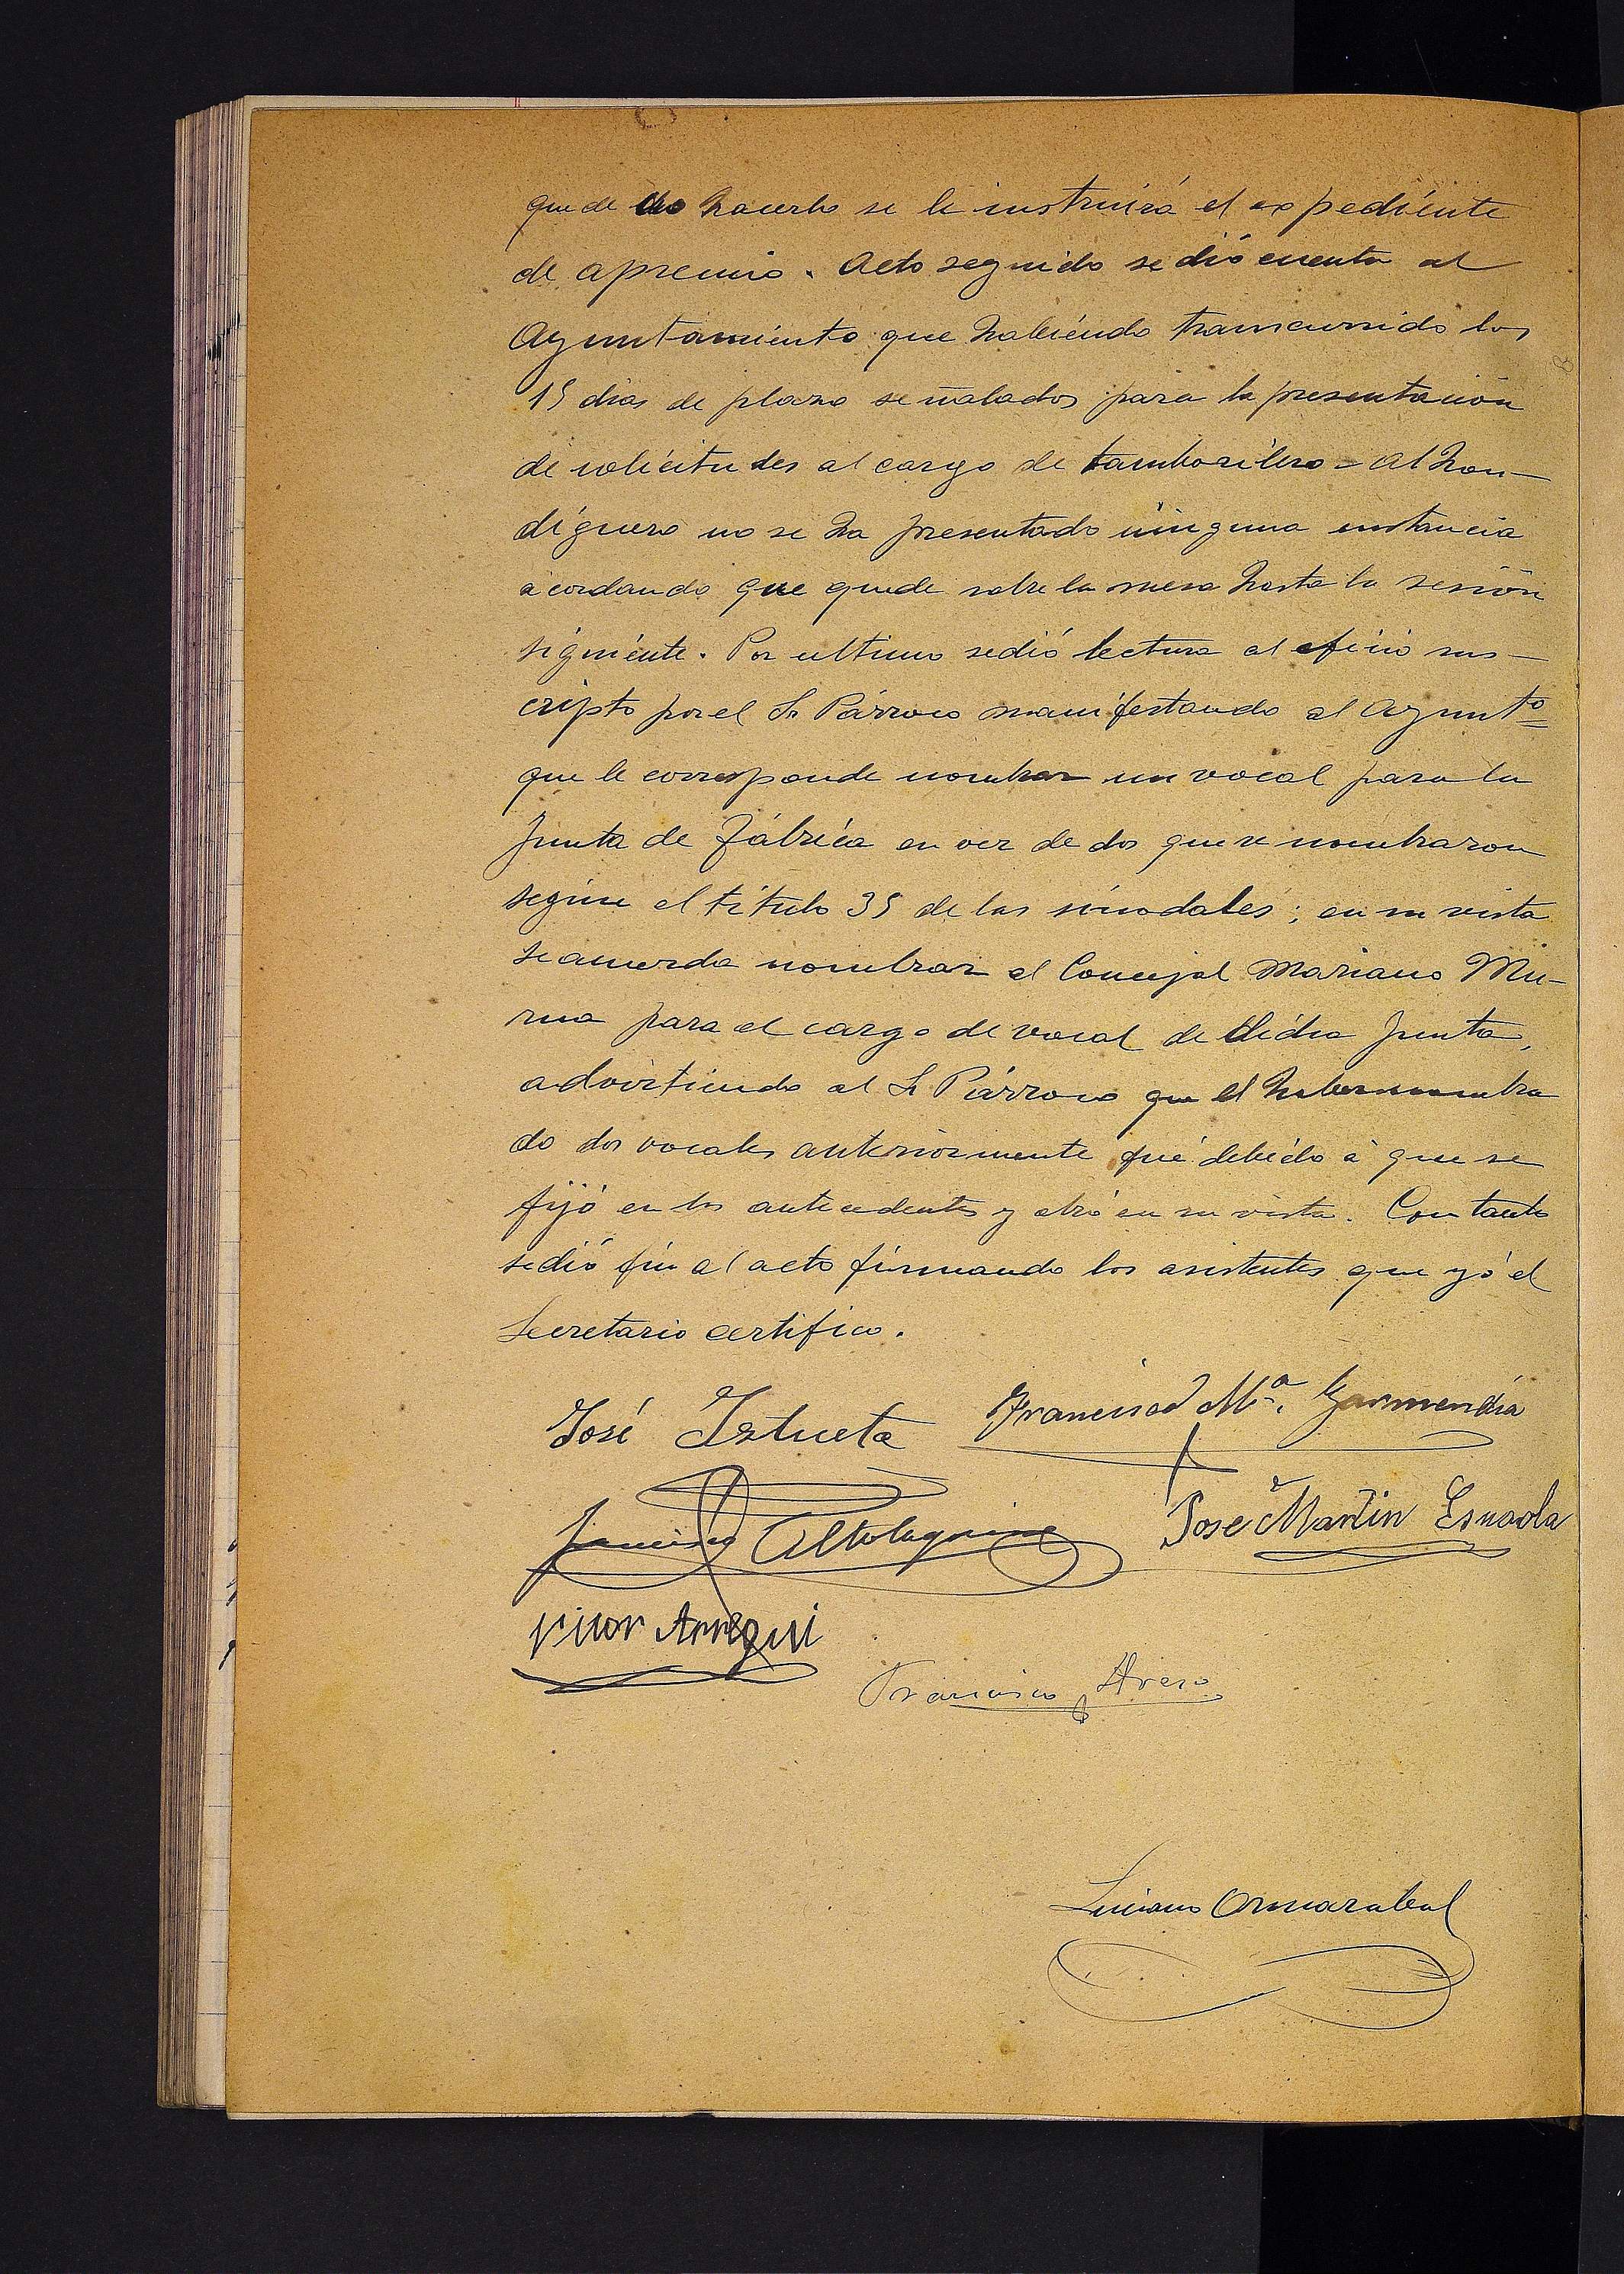 que de no hacerlo se le instruirá el expediente
de apremio. Acto seguido se dió cuenta al
Ayuntamiento que habiendo transcurrido los
15 dias de plazo señalados para la presentación
de solicitudes al cargo de tamborilero = alhon-
diguero no se ha presentado ninguna instancia
acordando que quede sobre la mesa hasta la sesión
siguiente. Por ultimo se dió lectura al oficio sus-
cripto por el Sr Párroco manifestando al Ayunto
que le corresponde nombrar un vocal para la
Junta de Fábrica en vez de dos que se nombraron
según el título 35 de las sinodales; en su vista
se acuerda nombrar al Concejal Mariano Mu-
rua para el cargo de vocal de dicha Junta,
advirtiendo al Sr Párroco que el haber nombra
do dos vocales anteriormente fué debido á que se
fijó en los antecedentes y obró en su vista. Con tanto
se dió fin al acto firmando los asistentes que yó el
Secretario certifico.
José Iztueta Francisco Mª. Garmendia
Francisco Altolaguirre José Martin Esnaola
Vitor Arregui
Francisco
Luciano Ormazabal